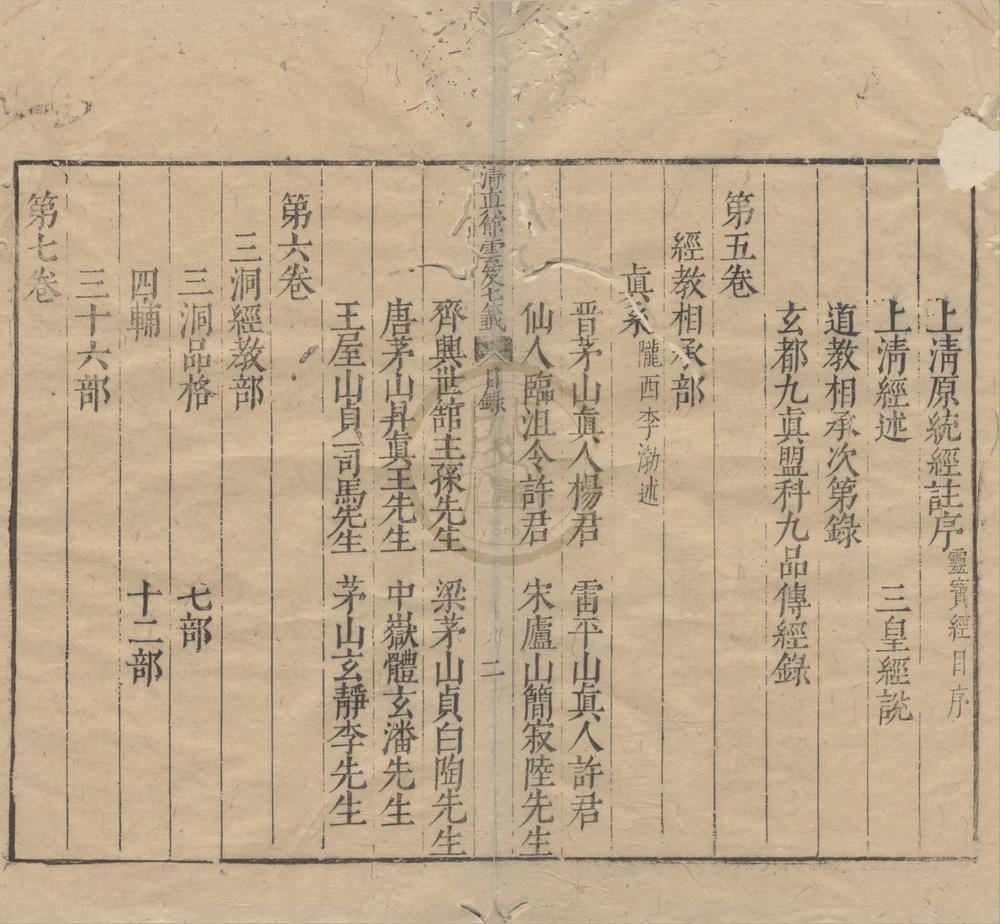 上清原統經註序靈寶經目序
上清經述　三皇經說
道教相承次第錄
玄都九眞盟科九品傳經錄
第五卷
經教相承部
眞系隴西李渤述
晋茅山眞人楊君　雷平山眞人許君
仙人臨沮令許君　宋廬山簡寂陸先生
清真館雲笈七籤　目錄　二
齊興世館主孫先生　梁茅山貞白陶先生
唐茅山昇眞王先生　中嶽體玄潘先生
王屋山貞一司馬先生　茅山玄靜李先生
第六卷
三洞經教部
三洞品格　七部
四輔　十二部
三十六部
第七卷